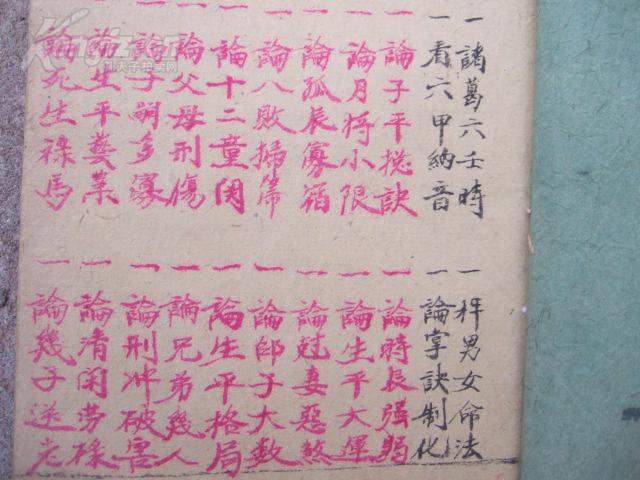 一諸葛六壬時
一看六甲納音
一論子平捴訣
一論月将小限
一論孤辰寡宿
一論八敗掃箒
一論十二童関
一論父母刑傷
一論子嗣多寡
一論生平藝業
一論死生祿馬
一秤男女命法
一論掌訣制化
一論時長强弱
一論生平大運
一論尅妻惡煞
一論郎子大数
一論生平格局
一論兄弟幾人
一論刑冲破害
一論清閑劳碌
一論幾子送老